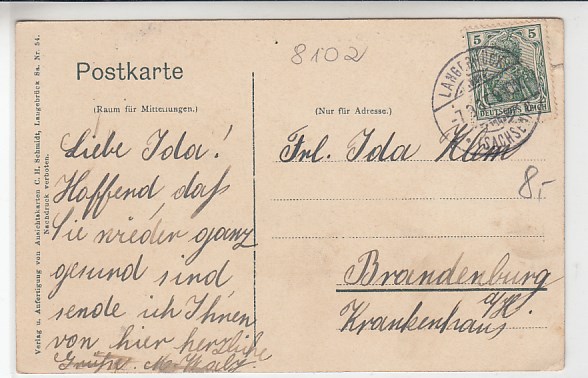 8102
5
DEUTSCHES REICH
LANGEBRÜCK
(SACHSEN)
Postkarte
(Raum für Mitteilungen.)
(Nur für Adresse.)
Liebe Ida!
Hoffend daß
Sie wieder ganz
gesund sind
sende ich Ihnen
von hier herzliche
Grüße. M.
Frl. Ida
8,-
Brandenburg
a/H.
Krankenhaus
Verlag u. Anfertigung von Ansichtskarten C. H. Schmidt, Langebrück Sa. Nr. 54.
Nachdruck verboten.